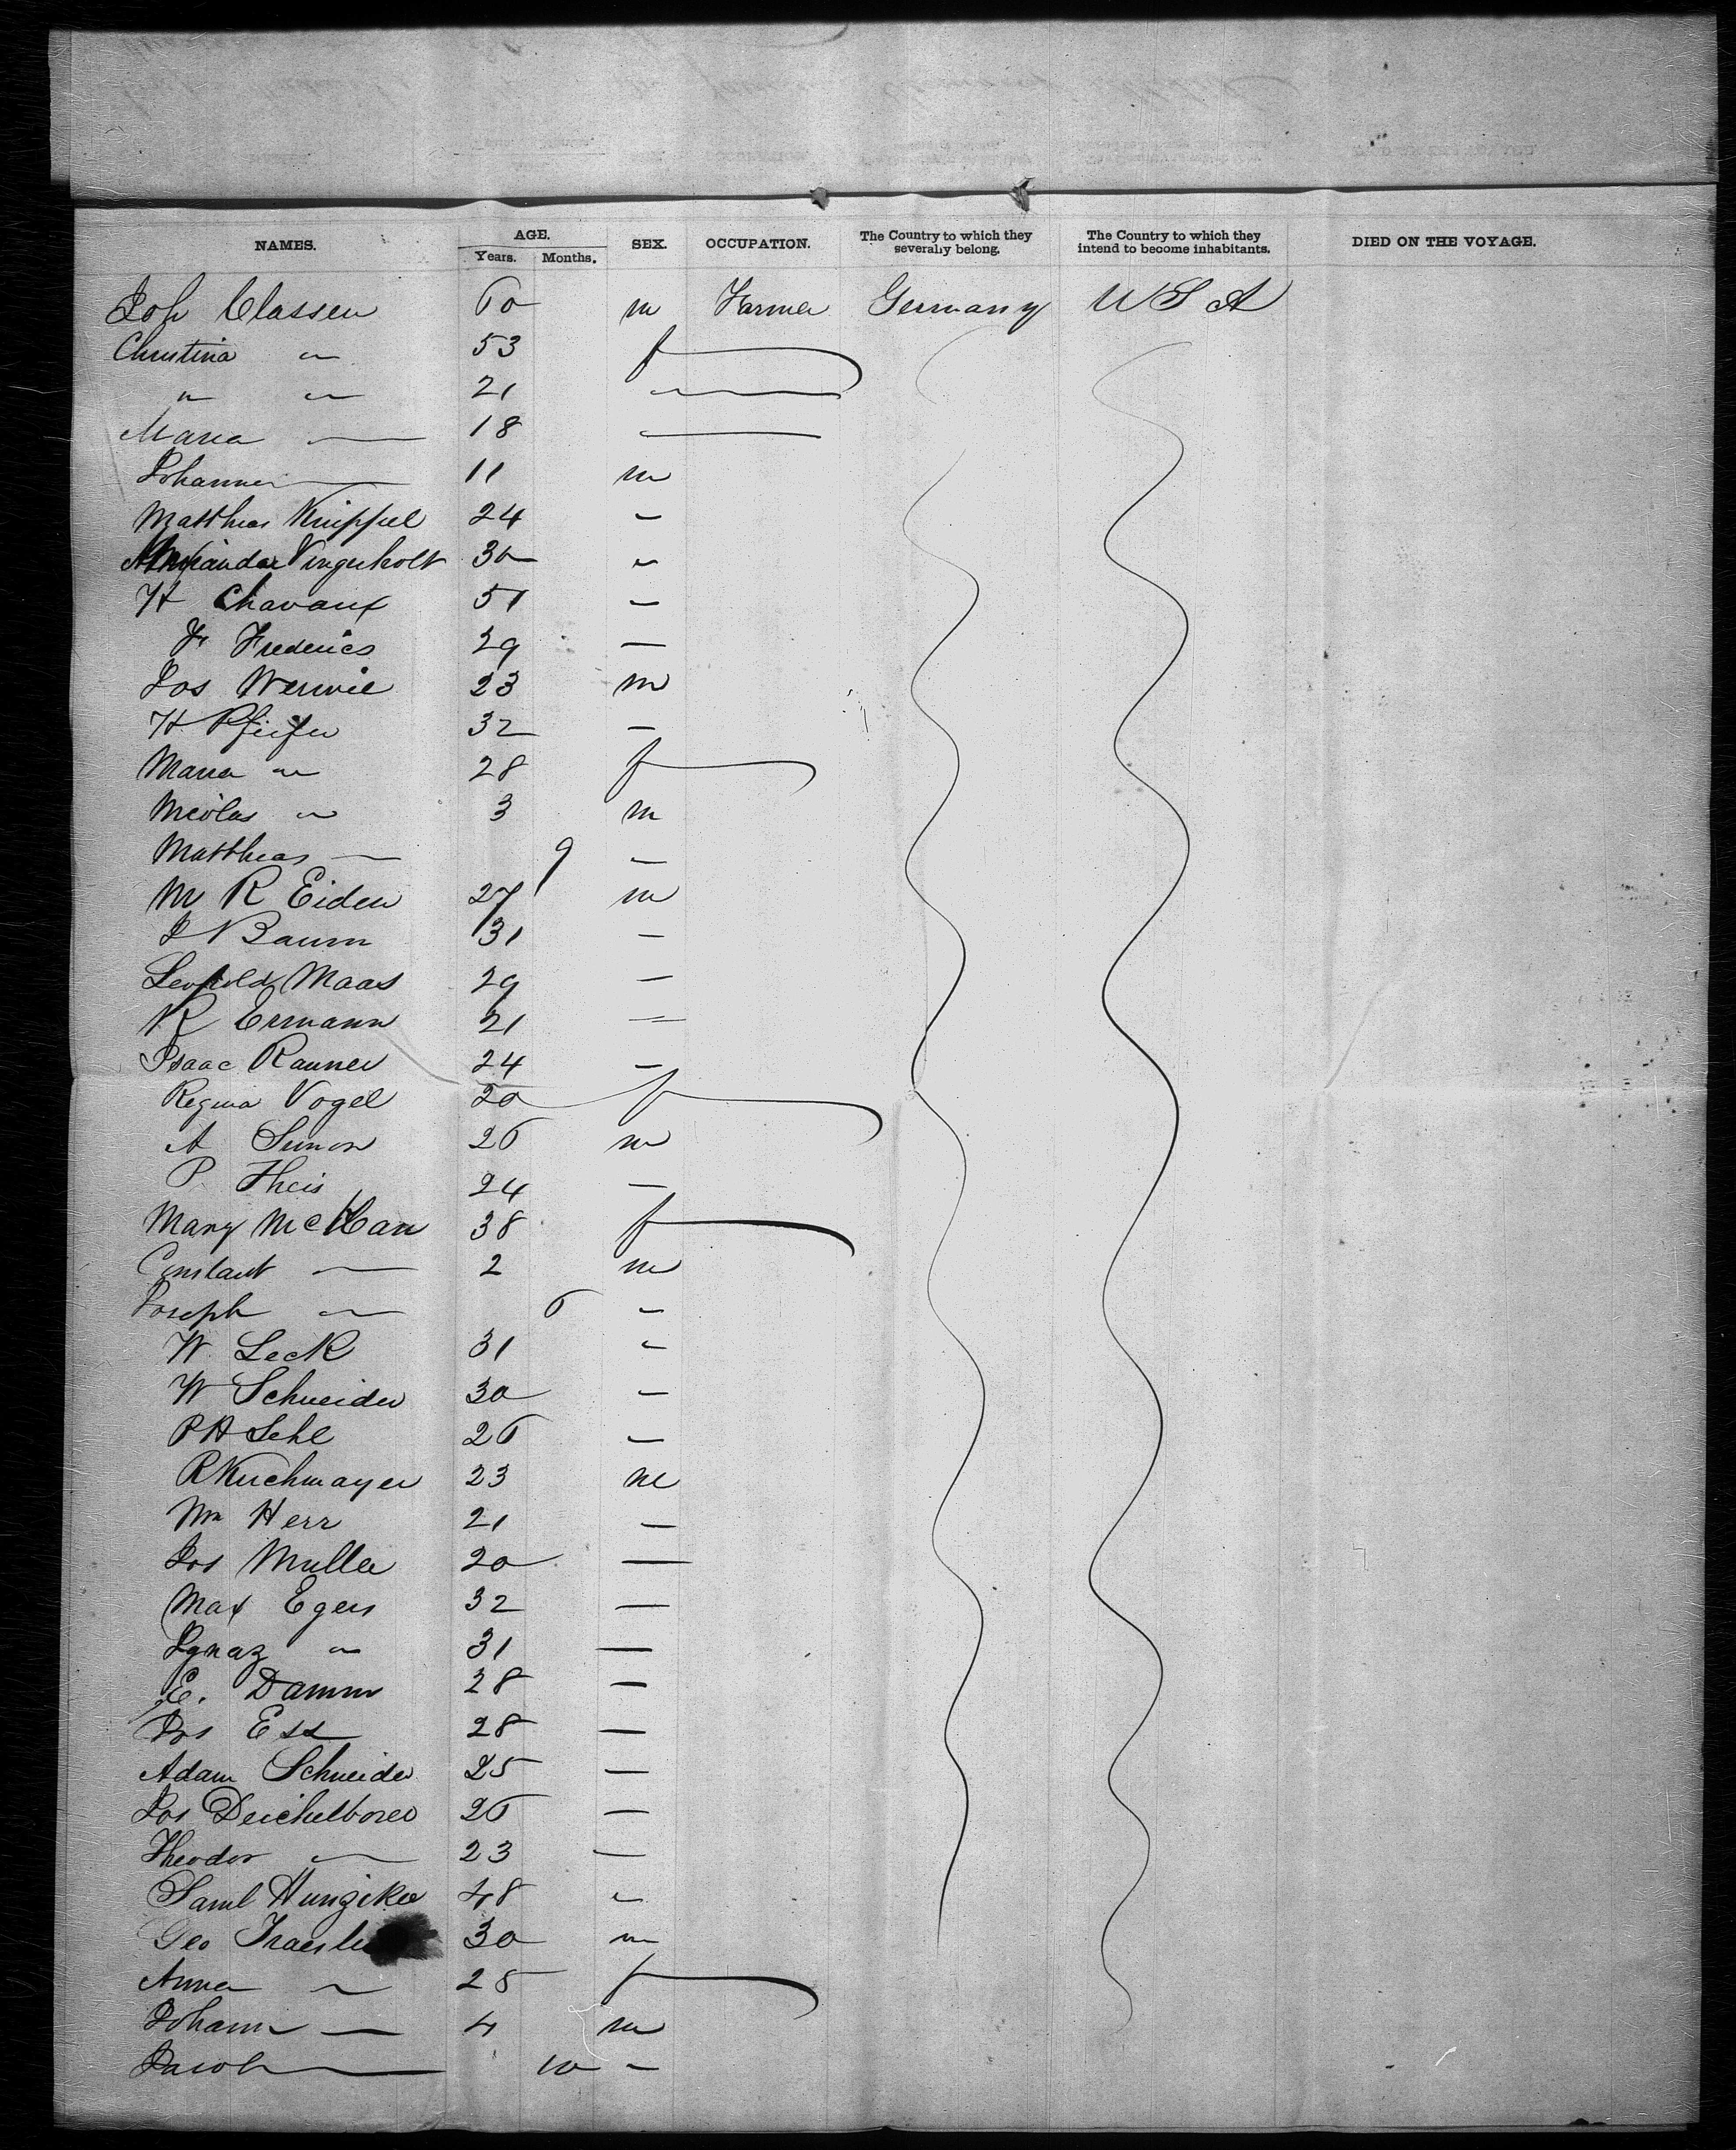 NAMES. AGE. SEX. OCCUPATION. The Country to which they severally belong. The Country to which they intend to become inhabitants. DIED ON THE VOYAGE.
Years. Months.
Joh Classen 60 m Farmer Germany U S A
Christina " 53 f
" " 21 "
Maria — 18 —
Johannes — 11 m
Matthias Knippel 24 —
Vinguholt 30 "
H Chavant 51 —
Fr Frederics 29 —
Jos Werwie 23 m
H Pfeifer 32 —
Maria " 28 f
Nicolas " 3 m
Matthias — 9 —
M R Eiden 27 m
J Baum 31 —
Leopold Maas 29 —
R Ermann 21 =
Isaac Rauner 24 —
Regina Vogel 20 f
A Simon 26 m
P. Theis 24 —
Mary 38 f
Constant — 2 m
Joseph " 6 "
W. Leck 31 "
W Schneider 30 —
P H Sehl 26 —
R Kirchmayer 23 m
Wm Herr 21 —
Jos Muller 20 —
Max Egers 32 —
Ignaz " 31 —
E. Damm 28 —
Jos Ess 28 —
Adam Schneider 25 —
Jos Deichelborer 26 —
Theodor " 23 —
Saml Hunziker 48 "
Geo 30 m
Anna " 28 f
Johann — 4 m
Jacob — 10 "